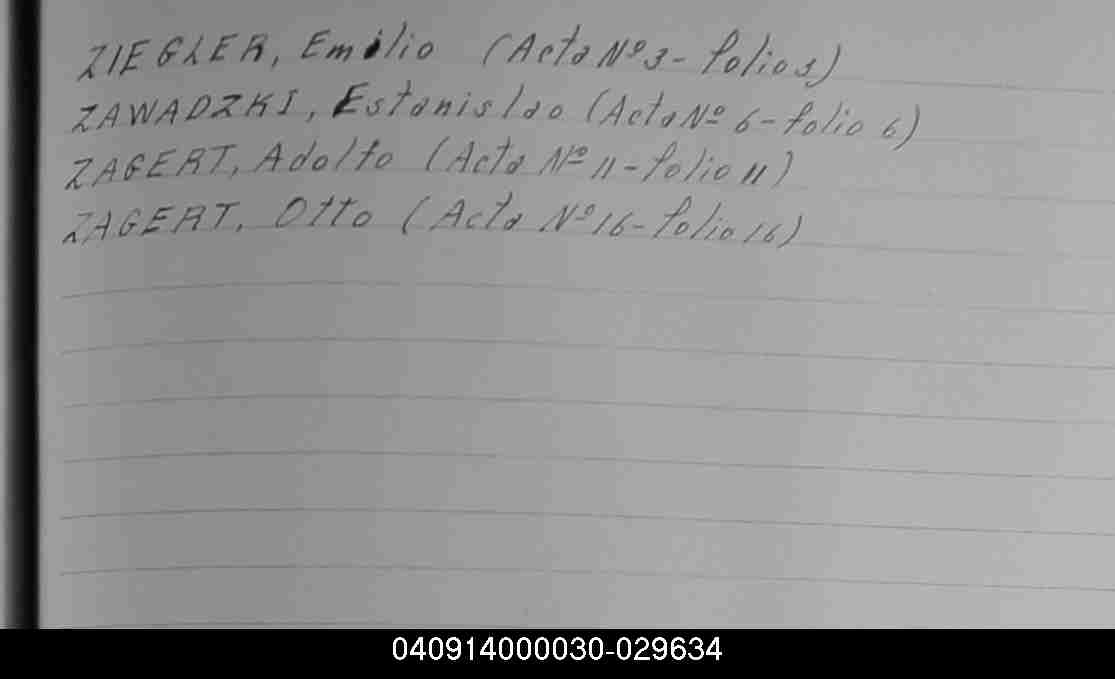 ZIEGLER, Emilio (Acta Nº 3 - folio 3)
ZAWADZKI, Estanislao (Acta Nº 6 - folio 6)
ZAGERT, Adolfo (Acta Nº 11 - folio 11)
ZAGERT, Otto (Acta Nº 16 - folio 16)
040914000030-029634